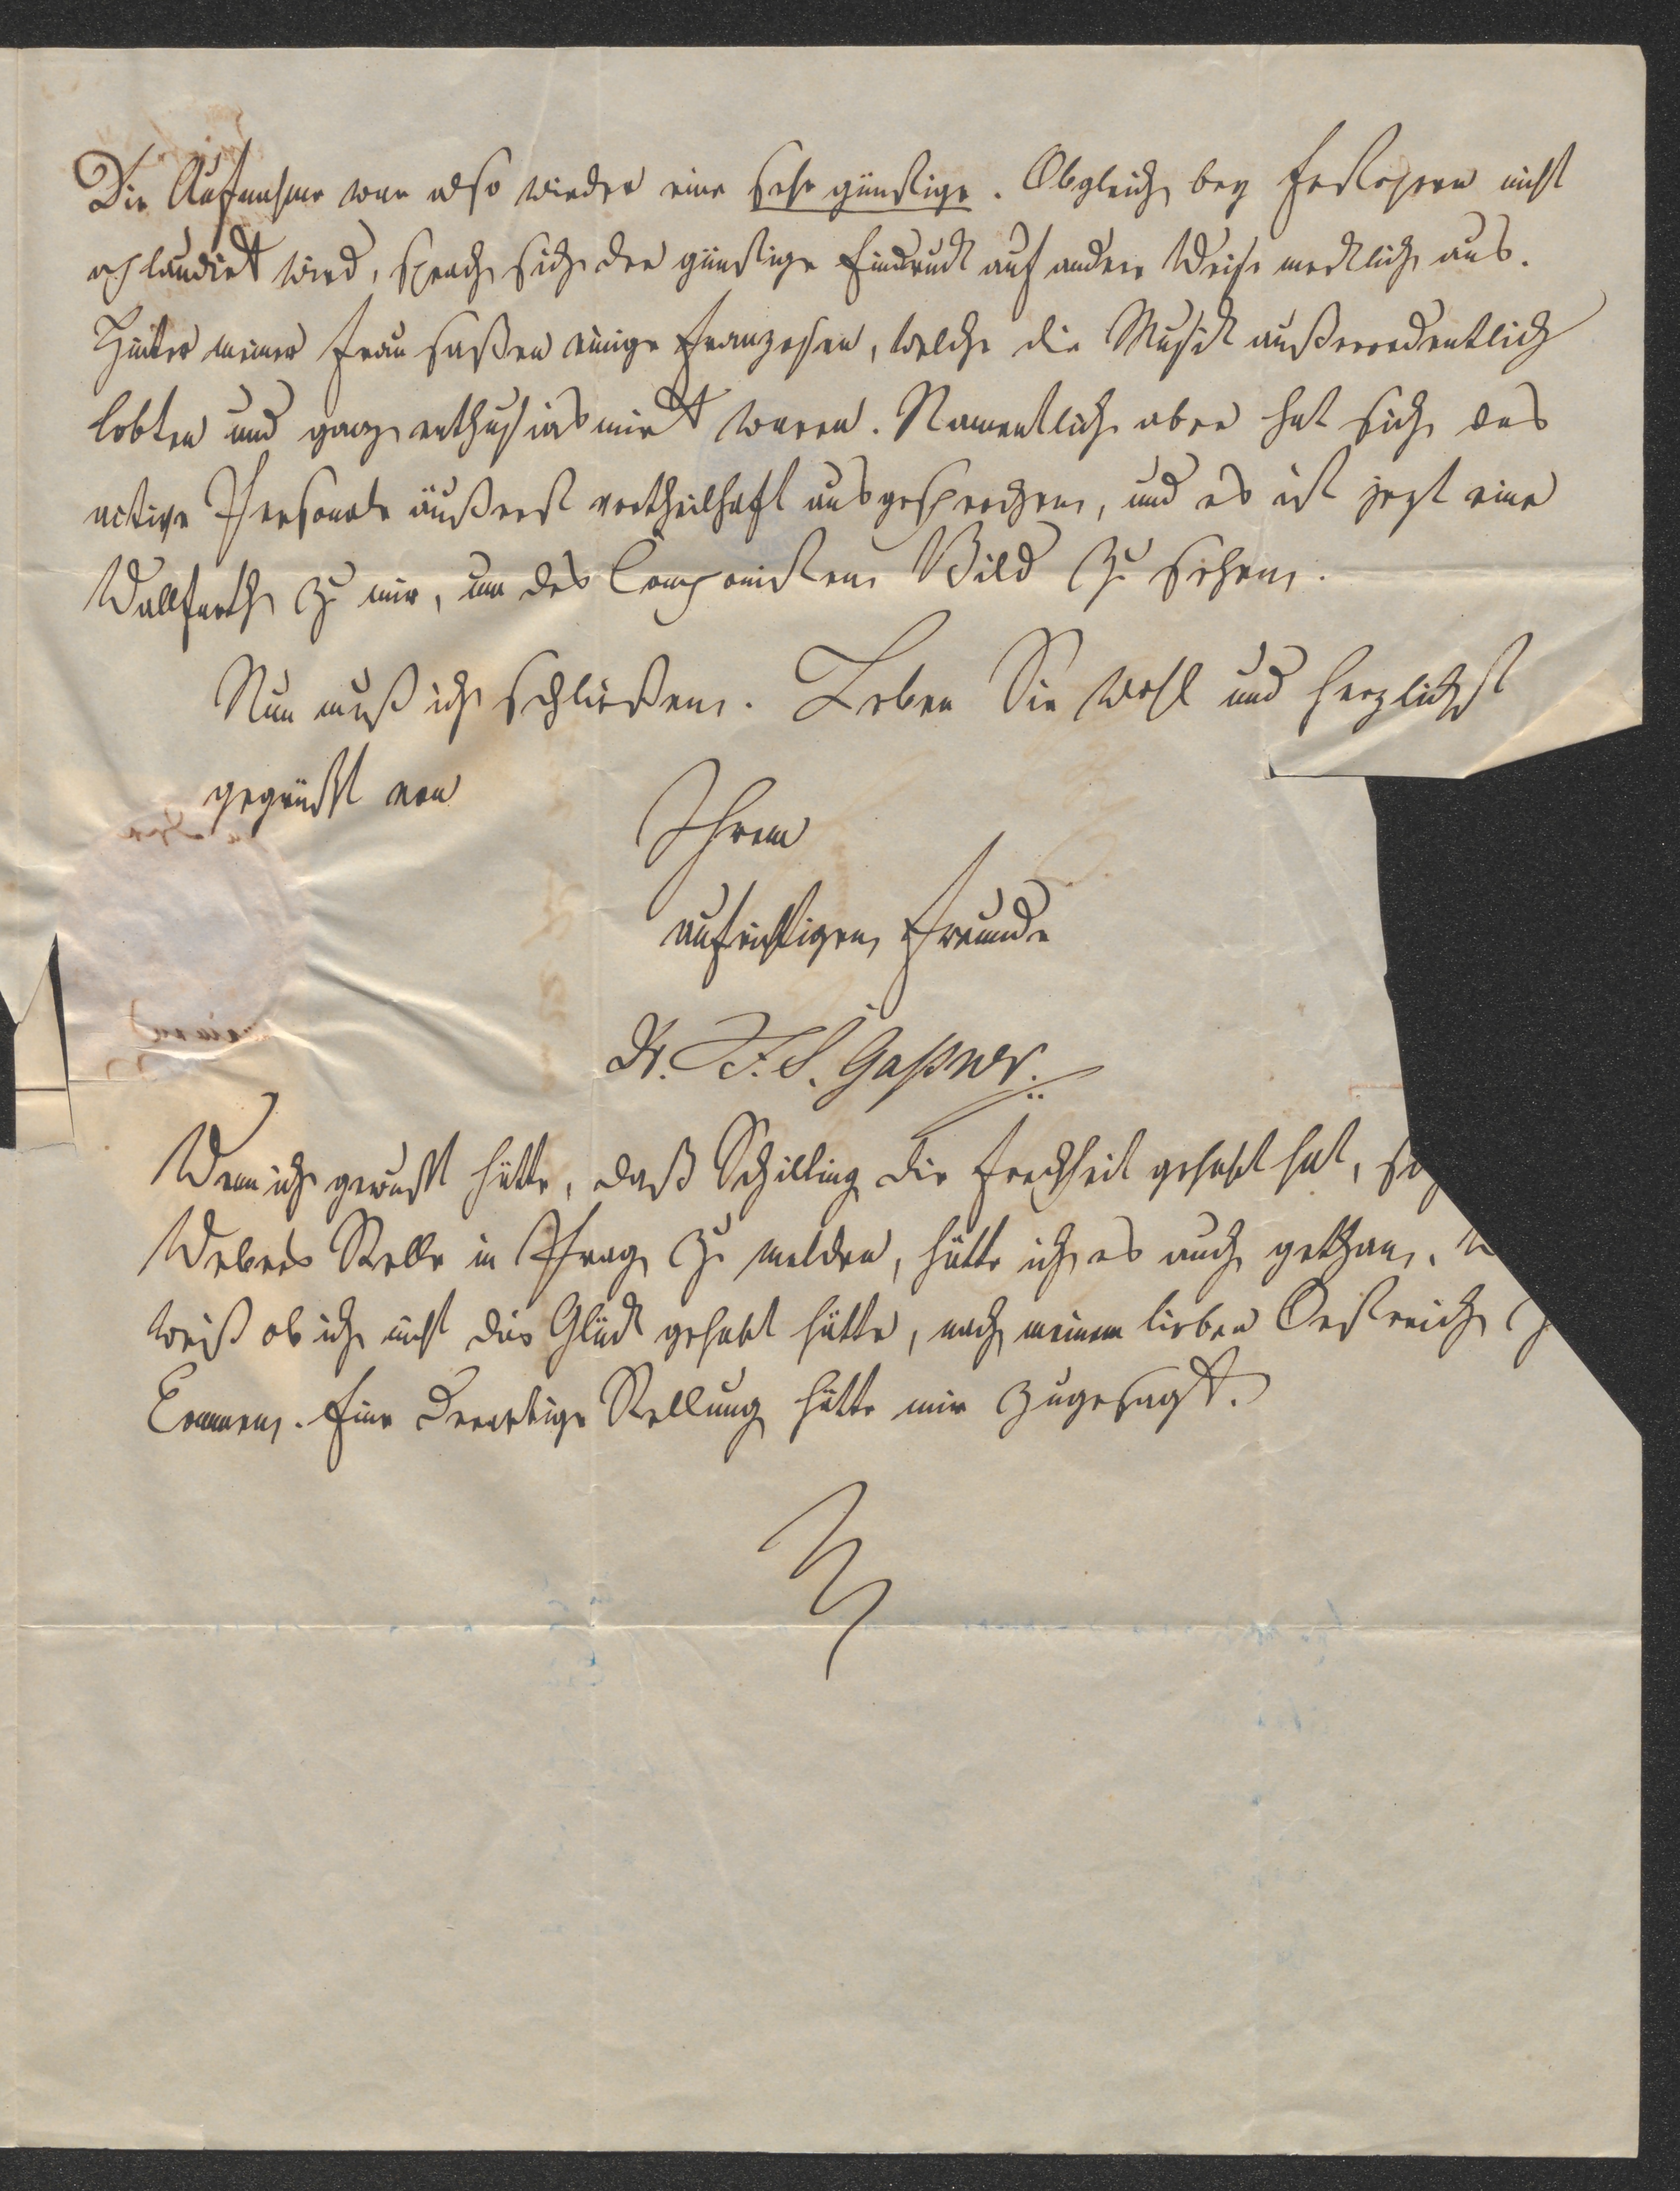 Die Aufnahme war also wieder eine sehr günstige. Obgleich bey Festopern nicht
aplaudirt wird, sprach sich der günstige Eindruck auf andere Weise merklich aus.
Hinter meiner Frau saßen einige Franzosen, welche die Musik außerordentlich
lobten und ganz enthusiasmirt waren. Namentlich aber hat sich das
active Personale äußerst vortheilhaft ausgesprochen, und es ist jezt eine
Wallfarth zu mir, um des Componisten Bild zu sehen.
Nun muß ich schließen. Leben Sie wohl und herzlichst
gegrüßt von
Ihrem
aufrichtigen Freunde
Dr. F. S. Gaßner.
Wenn ich gewußt hätte, daß Schilling die Frechheit gehabt hat, sich
Webers Stelle in Prag zu melden, hätte ich es auch gethan.
weiß ob ich nicht das Glück gehabt hätte, nach meinem lieben Oestreich
kommen. Eine derartige Stellung hätte mir zugesagt.